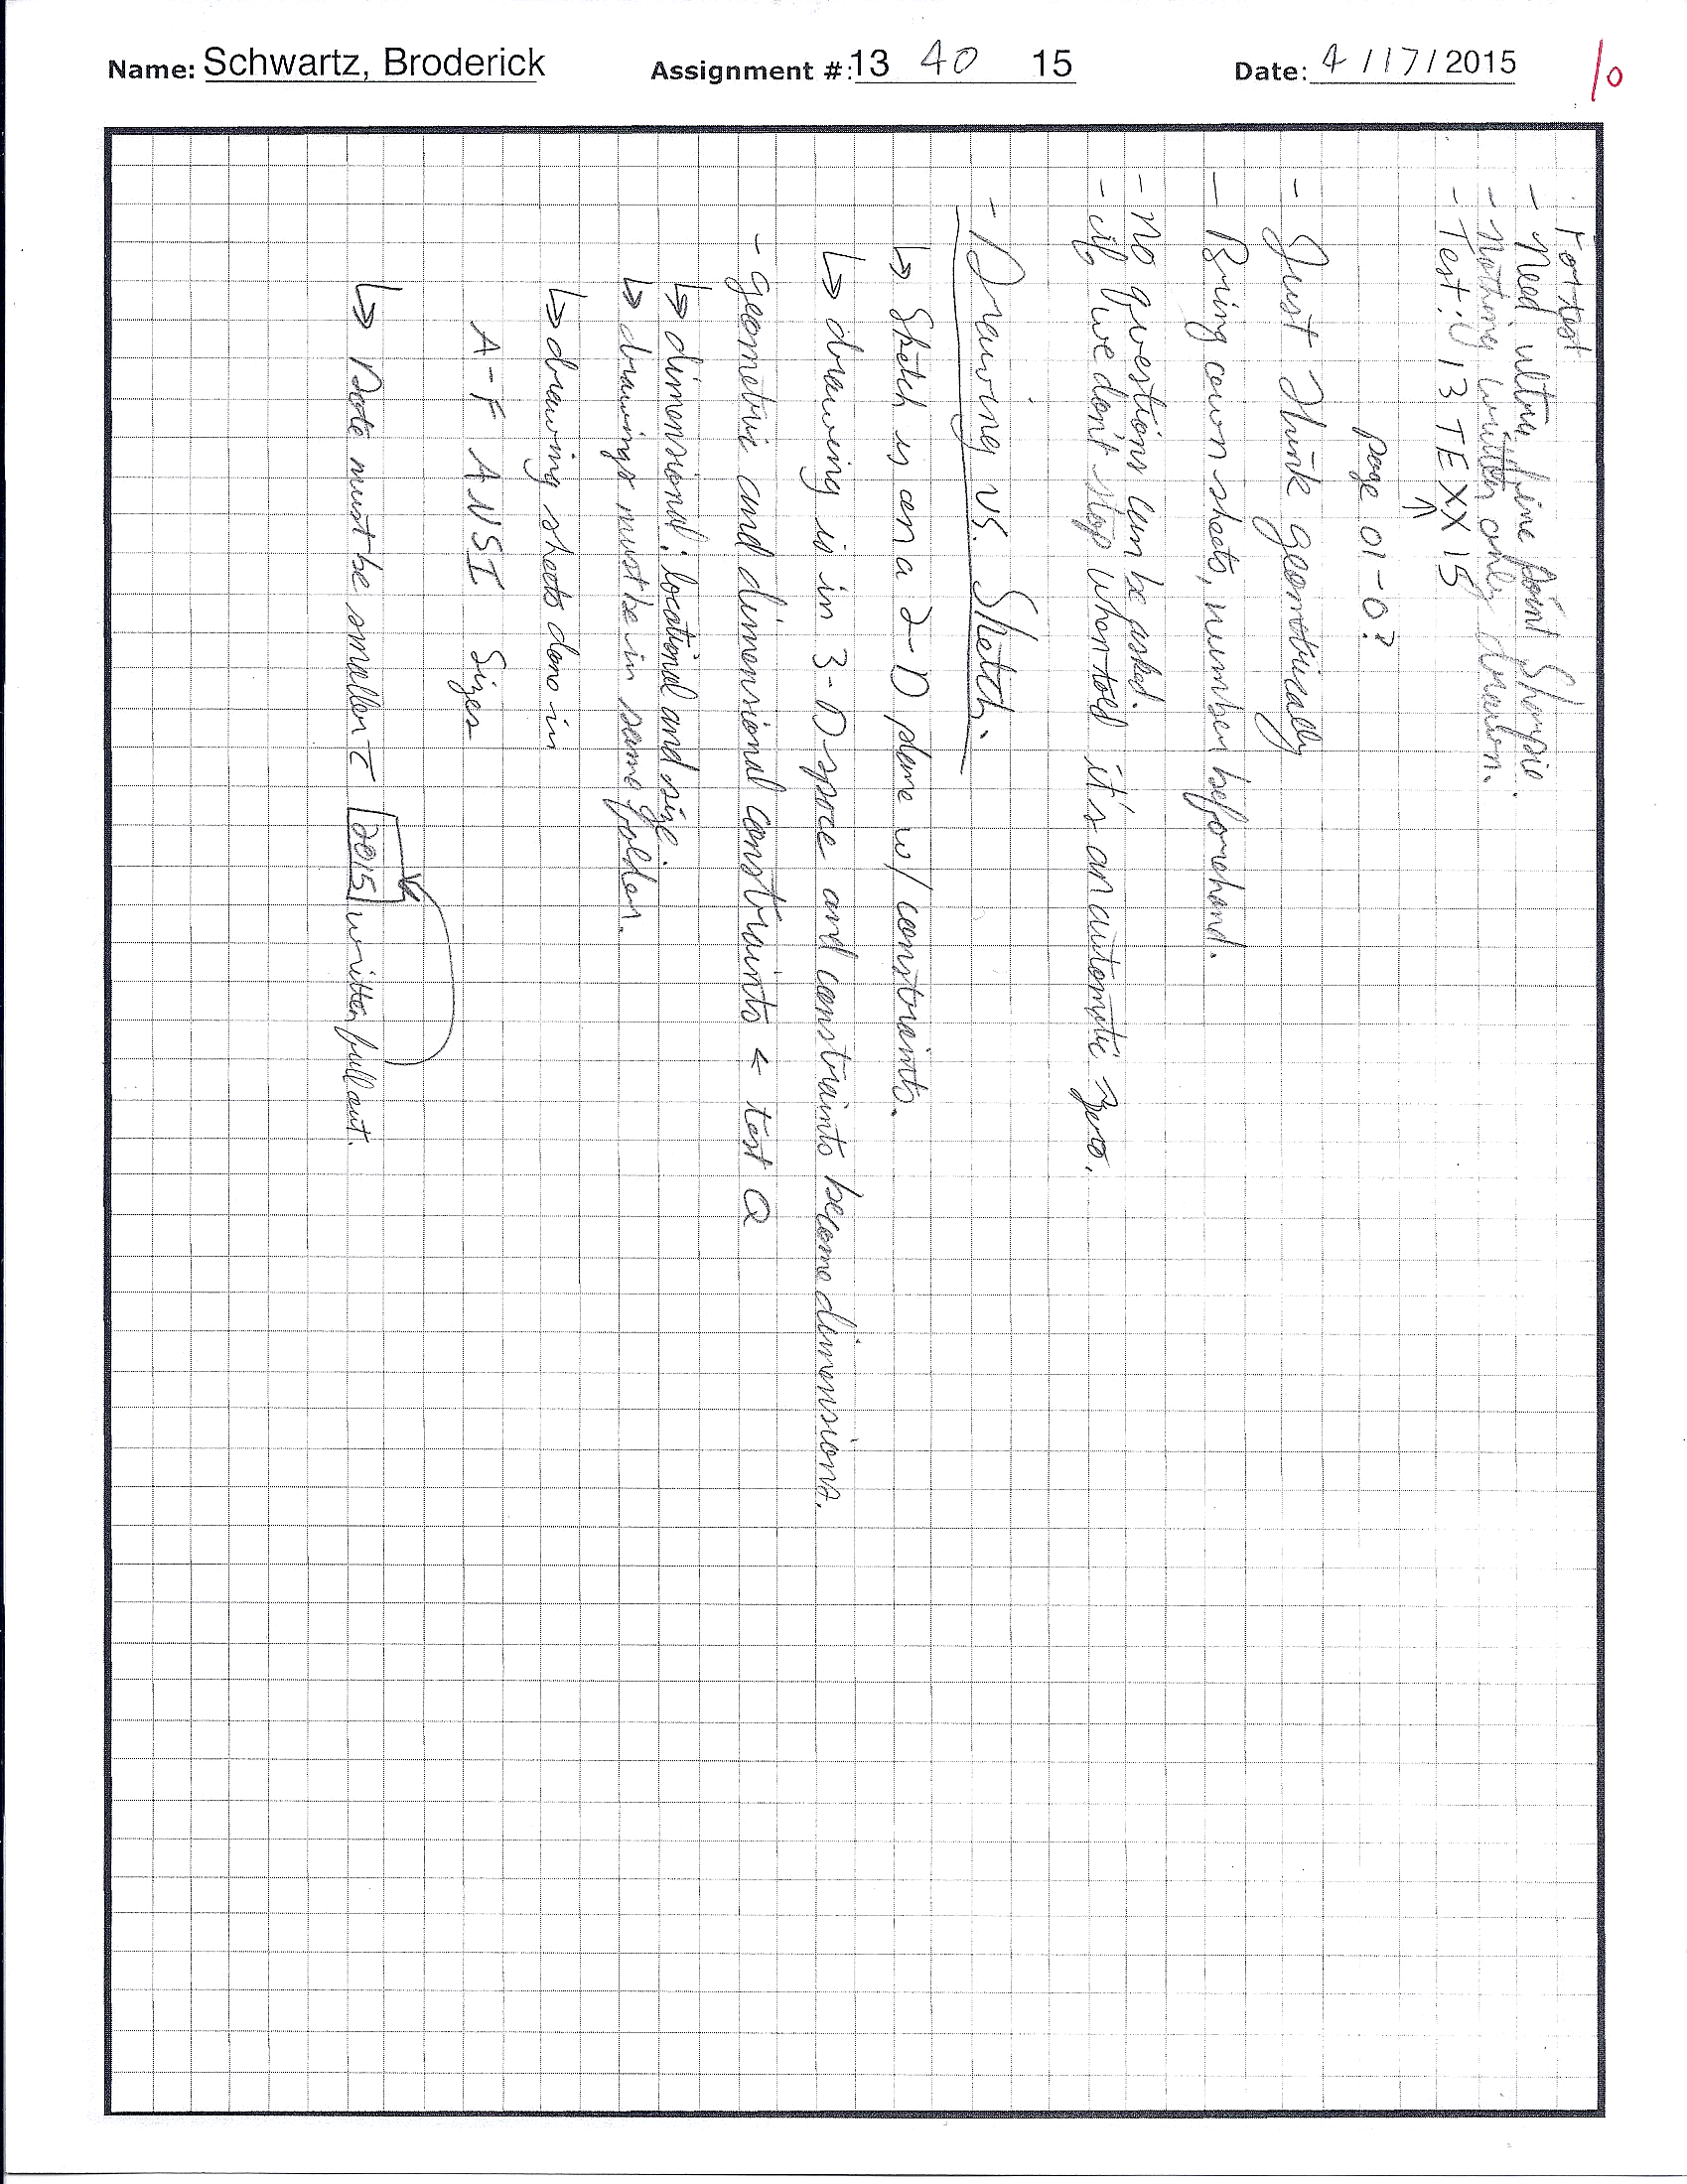 Name: Schwartz, Broderick Assignment #: 13 40 15 Date: 4/17/2015
10
For test
- Need ultra fine point Sharpie.
- Nothing written only drawn.
- Test: 13 TE XX 15
page 01-0?
- Just think geometrically
- Bring own sheets, number beforehand.
- No questions can be asked.
- if we don't stop when told it's an automatic zero.
- Drawing vs. Sketch.
↳ Sketch is on a 2-D plane w/ constraints.
↳ drawing is in 3-D space and constraints become dimensions.
- geometric and dimensional constraints ← test Q
↳ dimensional: locational and size.
↳ drawings must be in same folder.
↳ drawing sheets done in
A-F ANSI Sizes
↳ Date must be smaller 2015 written full out.